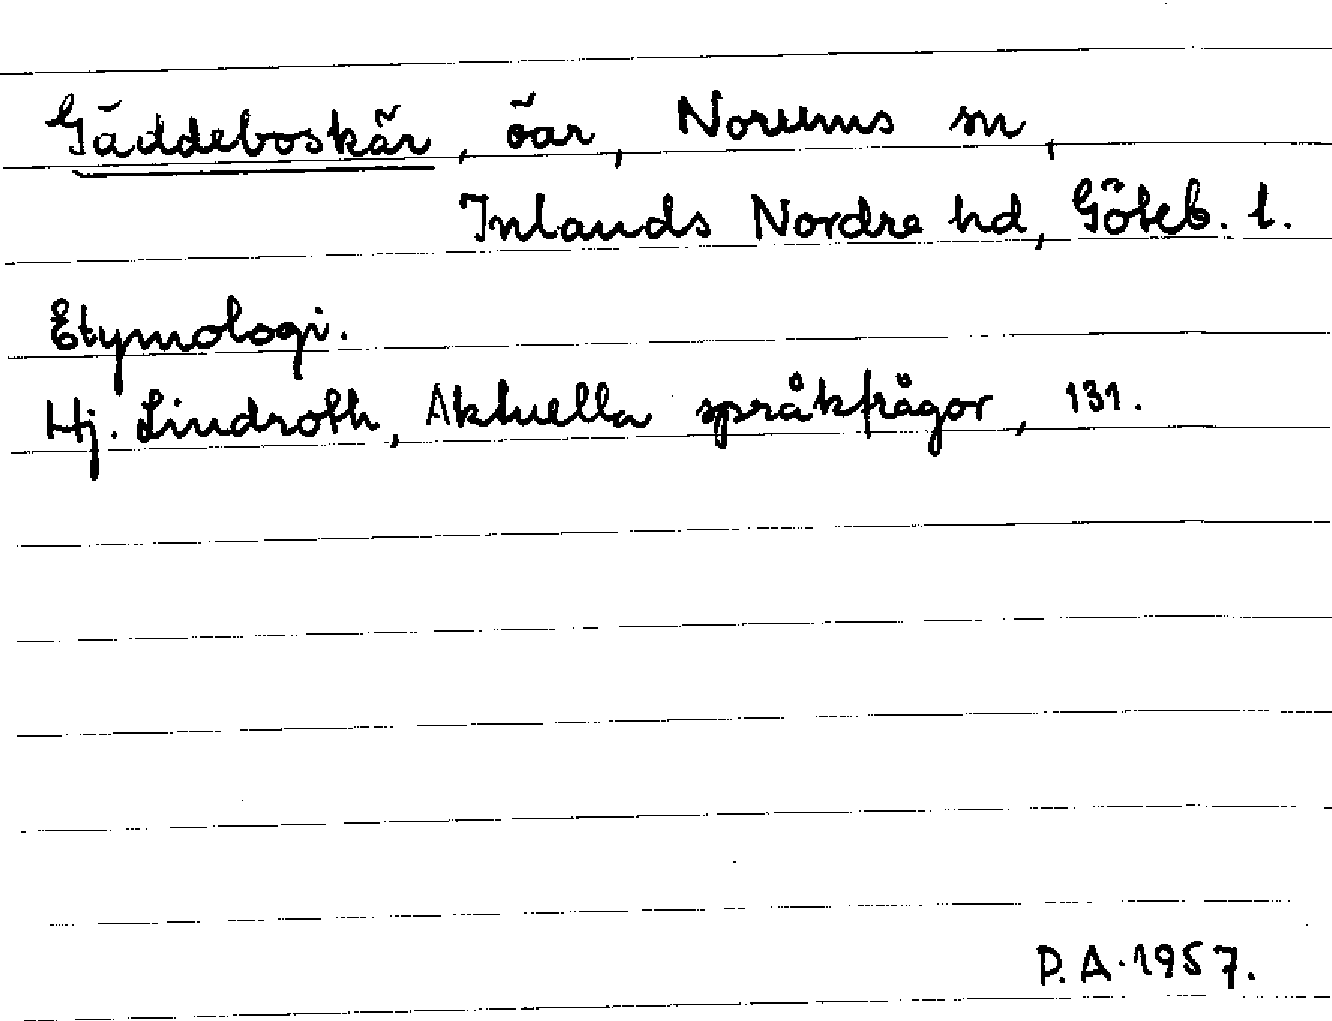 Gäddeboskär, öar, Norums sn,
Inlands Nordre hd, Göteb. l.
Etymologi.
Hj. Lindroth, Aktuella språkfrågor, 131.
P. A. 1957.